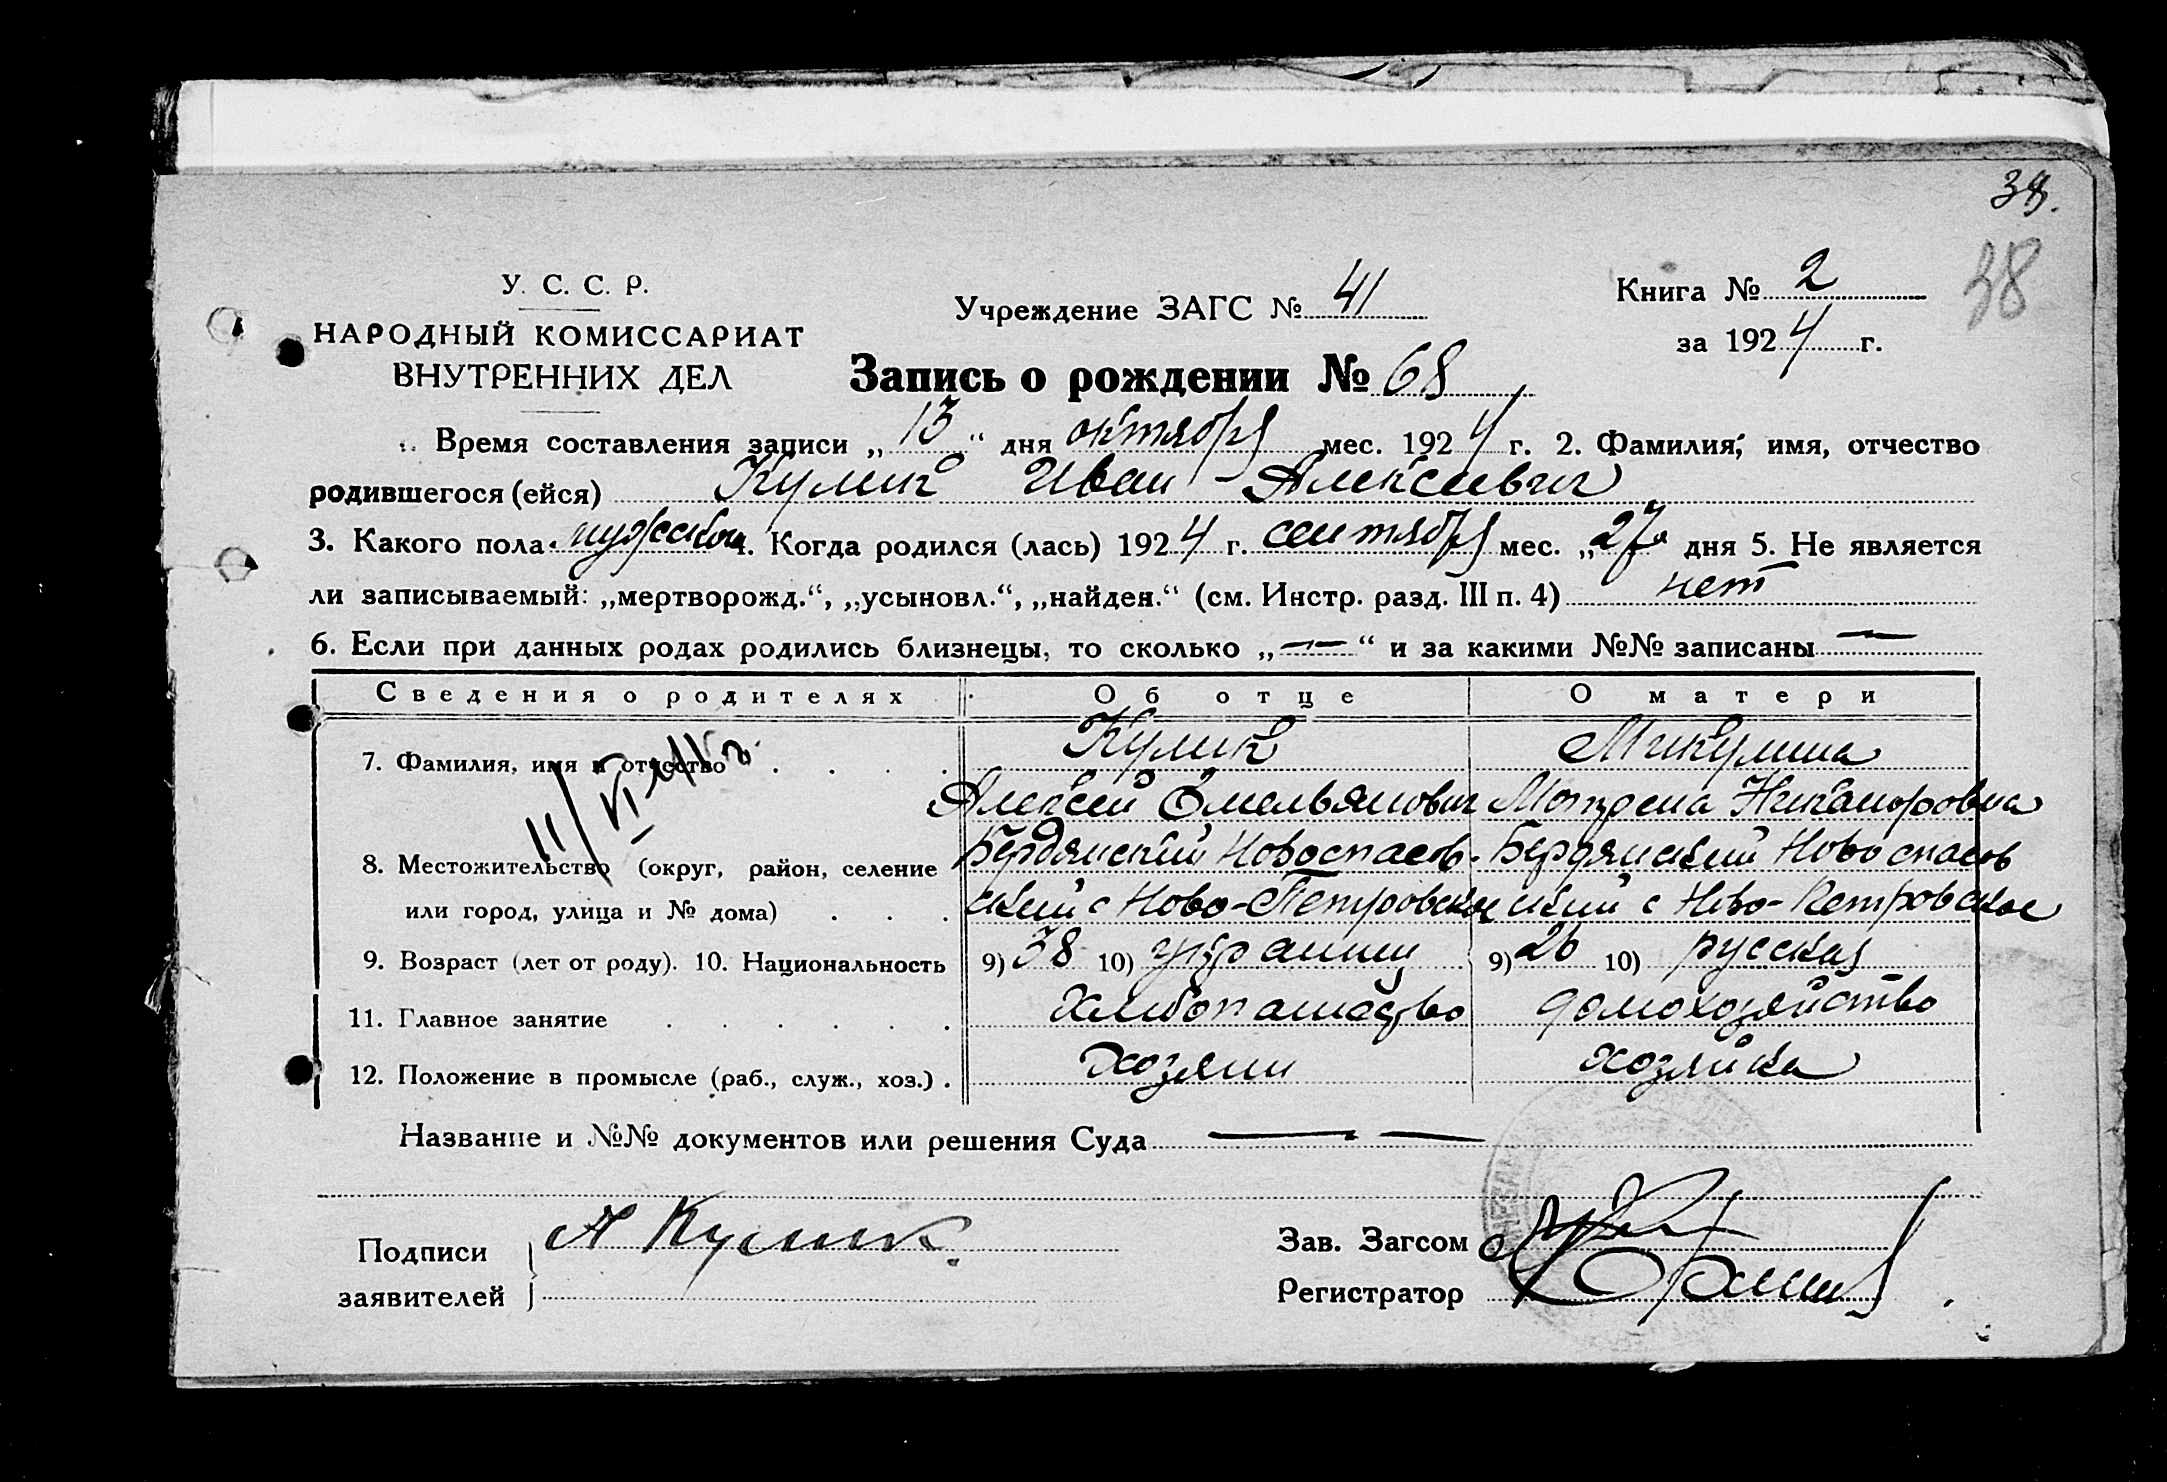 38.
38
У. С. С. Р.
НАРОДНЫЙ КОМИССАРИАТ
ВНУТРЕННИХ ДЕЛ
Учреждение ЗАГС № 41
Книга № 2
за 1924 г.
Запись о рождении № 68
Время составления записи „13“ дня октября мес. 1924 г. 2. Фамилия, имя, отчество
родившегося (ейся) Кулик Иван Алексеевич
3. Какого пола мужской 4. Когда родился (лась) 1924 г. сентября мес. „27“ дня 5. Не является
ли записываемый: „мертворожд.“, „усыновл.“, „найден.“ (см. Инстр. разд. III п. 4) нет
6. Если при данных родах родились близнецы, то сколько „—“ и за какими №№ записаны —
Сведения о родителях Об отце О матери
7. Фамилия, имя и отчество Кулик Микулина
Алексей Омельянович Мотрена Никаноровна
8. Местожительство (округ, район, селение Бердянский Новоспасов- Бердянский Новоспасов
или город, улица и № дома) ский с Ново-Петровское ский с Ново-Петровское
9. Возраст (лет от роду). 10. Национальность 9) 38 10) украинец 9) 26 10) русская
11. Главное занятие Хлебопашество домохозяйство
12. Положение в промысле (раб., служ., хоз.) Хозяин хозяйка
Название и №№ документов или решения Суда — —
Подписи заявителей А Кулик.
Зав. Загсом
Регистратор